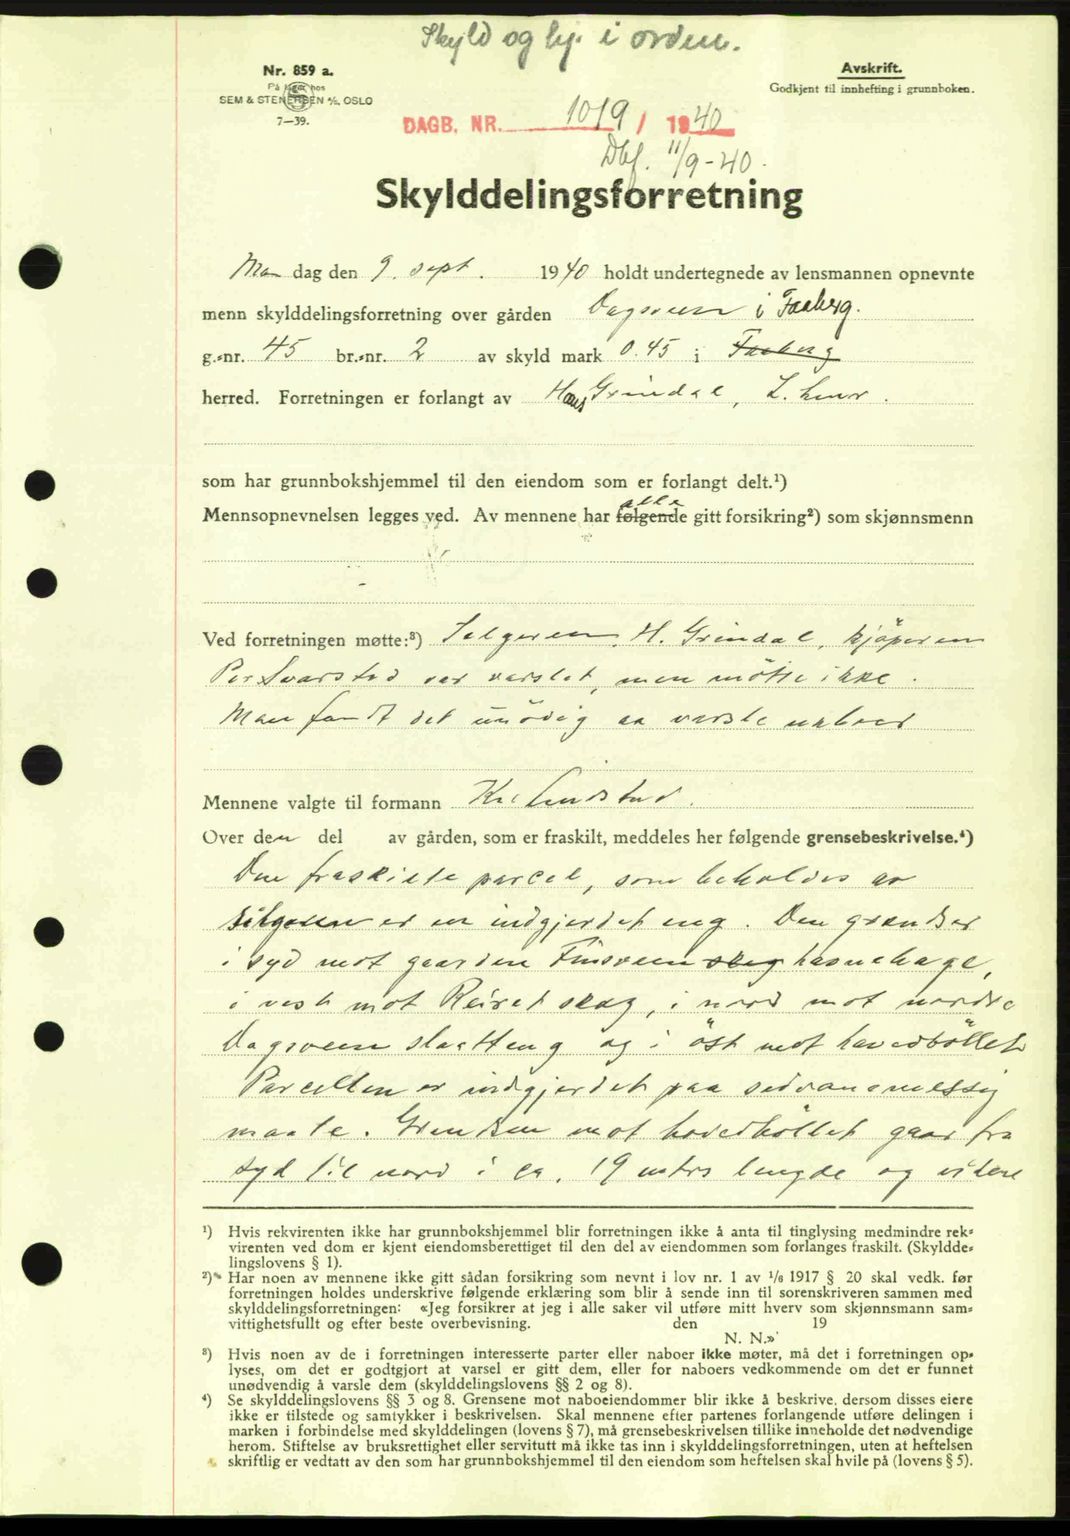 Skyld og hj. i orden.
Nr. 859 a.
På lager hos
SEM & STENERSEN A/S, OSLO
7—39.
Avskrift.
Godkjent til innhefting i grunnboken.
DAGB. NR. 1019 / 1940
Dbf. 11/9-40.
Skylddelingsforretning
Man dag den 9. sept. 1940 holdt undertegnede av lensmannen opnevnte
menn skylddelingsforretning over gården Dagsveen i Faaberg.
g.-nr. 45 br.-nr. 2 av skyld mark 0.45 i Faaberg
herred. Forretningen er forlangt av Hans Grindal, L.hmr.
som har grunnbokshjemmel til den eiendom som er forlangt delt.¹)
alle
Mennsopnevnelsen legges ved. Av mennene har følgende gitt forsikring²) som skjønnsmenn
Ved forretningen møtte:³) Selgeren, H. Grindal, kjöperen
Per Svarstad var varslet, men mötte ikke.
Man fandt det unödig aa varsle naboer
Mennene valgte til formann Kr. Lindstad.
Over den del av gården, som er fraskilt, meddeles her følgende grensebeskrivelse.⁴)
Den fraskilte parcel, som beholdes av
selgeren er en indgjerdet eng. Den grendser
i syd mot gaarden Finsveen skog havnehage,
i vest mot Reiret skog, i nord mot nordre
Dagsveen slaatteng og i öst mot hovedböllet
Parcellen er indgjerdet paa sedvansmessig
maate. Grendsen mot hovedböllet gaar fra
syd til nord i ca. 19 meters lengde og videre
¹) Hvis rekvirenten ikke har grunnbokshjemmel blir forretningen ikke å anta til tinglysing medmindre rek-
virenten ved dom er kjent eiendomsberettiget til den del av eiendommen som forlanges fraskilt. (Skyldde-
lingslovens § 1).
²) Har noen av mennene ikke gitt sådan forsikring som nevnt i lov nr. 1 av 1/6 1917 § 20 skal vedk. før
forretningen holdes underskrive følgende erklæring som blir å sende inn til sorenskriveren sammen med
skylddelingsforretningen: «Jeg forsikrer at jeg i alle saker vil utføre mitt hverv som skjønnsmann sam-
vittighetsfullt og efter beste overbevisning. den 19
N. N.»
³) Hvis noen av de i forretningen interesserte parter eller naboer ikke møter, må det i forretningen op-
lyses, om det er godtgjort at varsel er gitt dem, eller for naboers vedkommende om det er funnet
unødvendig å varsle dem (skylddelingslovens §§ 2 og 8).
⁴) Se skylddelingslovens §§ 3 og 8. Grensene mot naboeiendommer blir ikke å beskrive, dersom disses eiere
ikke er tilstede og samtykker i beskrivelsen. Skal mennene efter partenes forlangende utføre delingen i
marken i forbindelse med skylddelingen (lovens § 7), må grensebeskrivelsen tillike inneholde det nødvendige
herom. Stiftelse av bruksrettighet eller servitutt må ikke tas inn i skylddelingsforretningen, uten at heftelsen
skriftlig er vedtatt av den som har grunnbokshjemmel til den eiendom som heftelsen skal hvile på (lovens § 5).